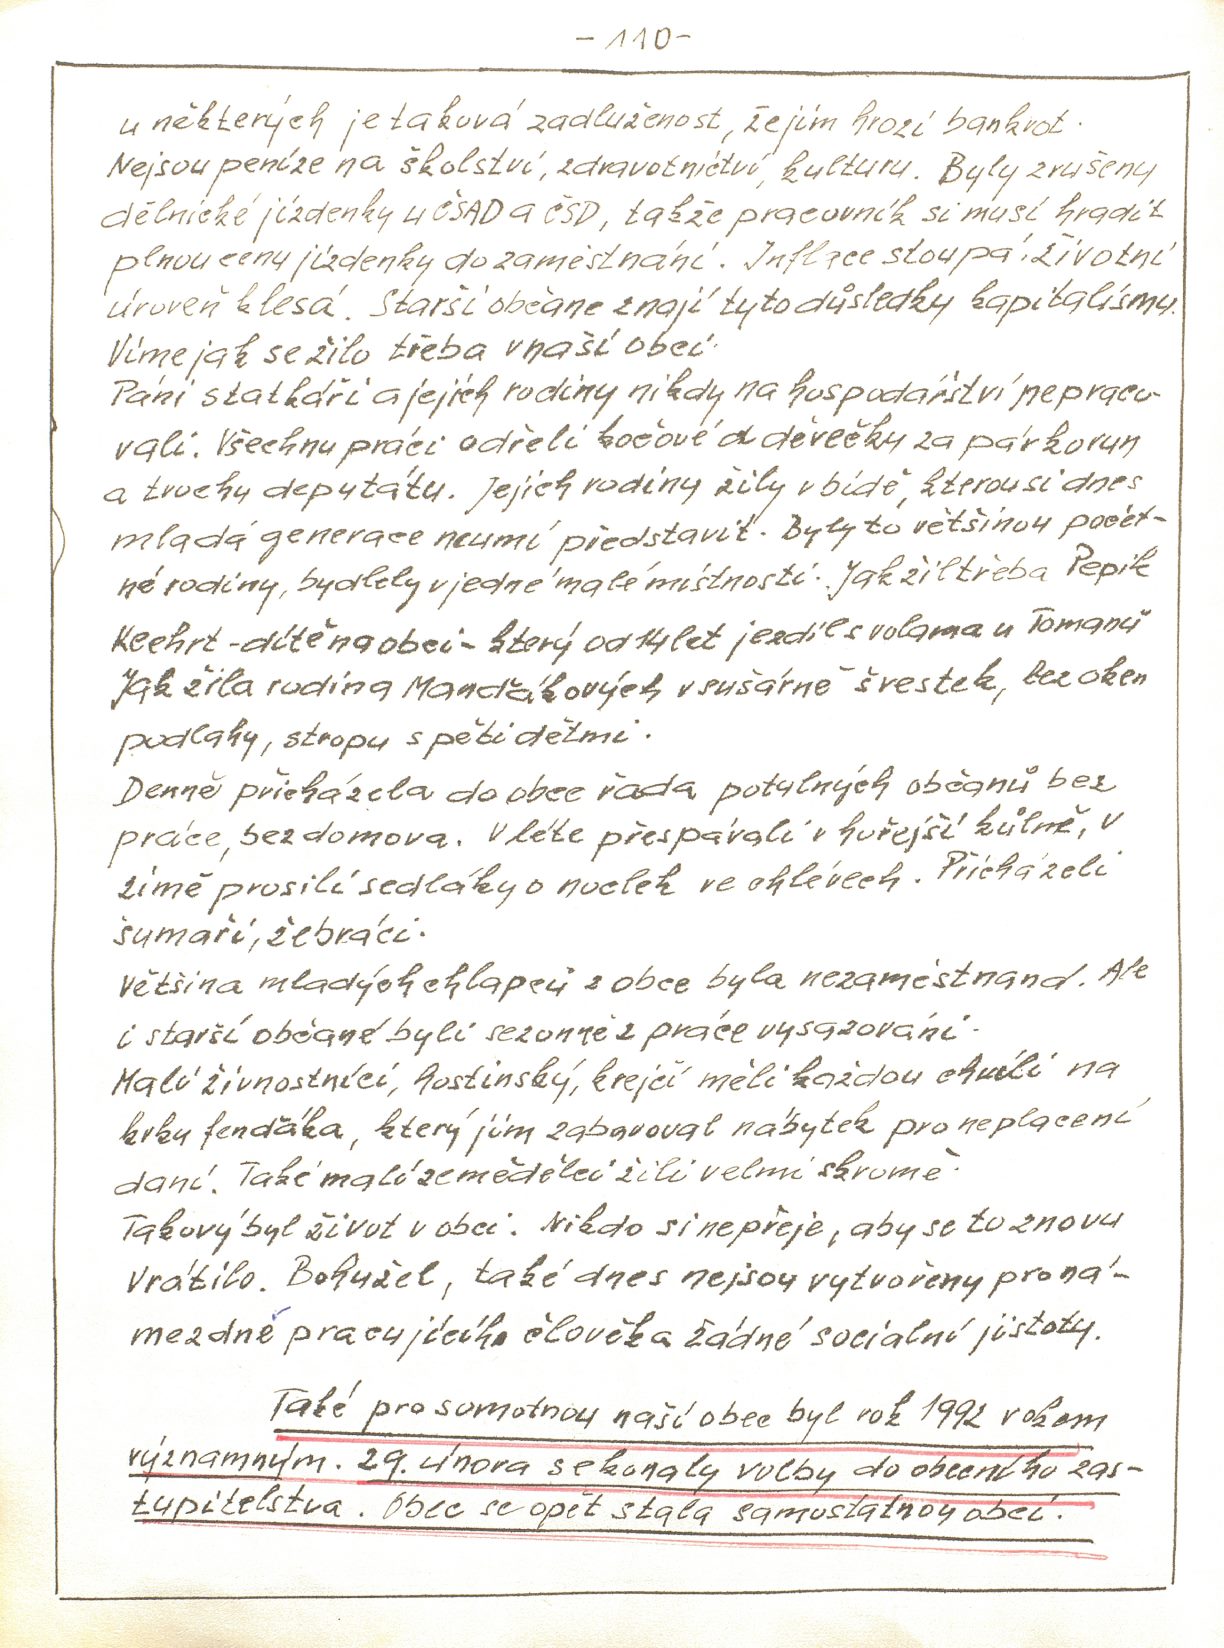 - 110 -
u některých je taková zadluženost, že jim hrozí bankrot.
Nejsou peníze na školství, zdravotnictví, kulturu. Byly zrušeny
dělnické jízdenky u ČSAD a ČSD, takže pracovník si musí hradit
plnou cenu jízdenky do zaměstnání. Inflace stoupá, životní
úroveň klesá. Starší občané znají tyto důsledky kapitalismu.
Víme jak se žilo třeba v naší obci.
Páni statkáři a jejich rodiny nikdy na hospodářství nepraco-
vali. Všechnu práci odřeli kočové a děvečky za pár korun
a trochu deputátu. Jejich rodiny žily v bídě, kterou si dnes
mladá generace neumí představit. Byly to většinou početr-
né rodiny, bydlely v jedné malé místnosti. Jak žil třeba Pepík
Kechrt - dítě na obci - který od 14 let jezdil s volama u Tomanů
Jak žila rodina Mandžákových v sušárně švestek, bez oken
podlahy, stropu s pěti dětmi.
Denně přicházela do obce řada potulných občanů bez
práce, bez domova. V létě přespávali v hořejší kůlně, v
zimě prosili sedláky o nocleh ve chlévech. Přicházeli
šumaři, žebráci.
Většina mladých chlapců z obce byla nezaměstnaná. Ale
i starší občané byli sezonně z práce vysazováni.
Malí živnostníci, hostinský, krejčí měli každou chvíli na
krku fendžáka, který jim zabavoval nábytek pro neplacení
daní. Také malí zemědělci žili velmi skromě.
Takový byl život v obci. Nikdo si nepřeje, aby se to znovu
vrátilo. Bohužel, také dnes nejsou vytvořeny pro ná-
mezdně pracujícího člověka žádné sociální jistoty.
Také pro samotnou naší obec byl rok 1992 rokem
významným. 29. února se konaly volby do obecního zas-
tupitelstva. Obec se opět stala samostatnou obcí.